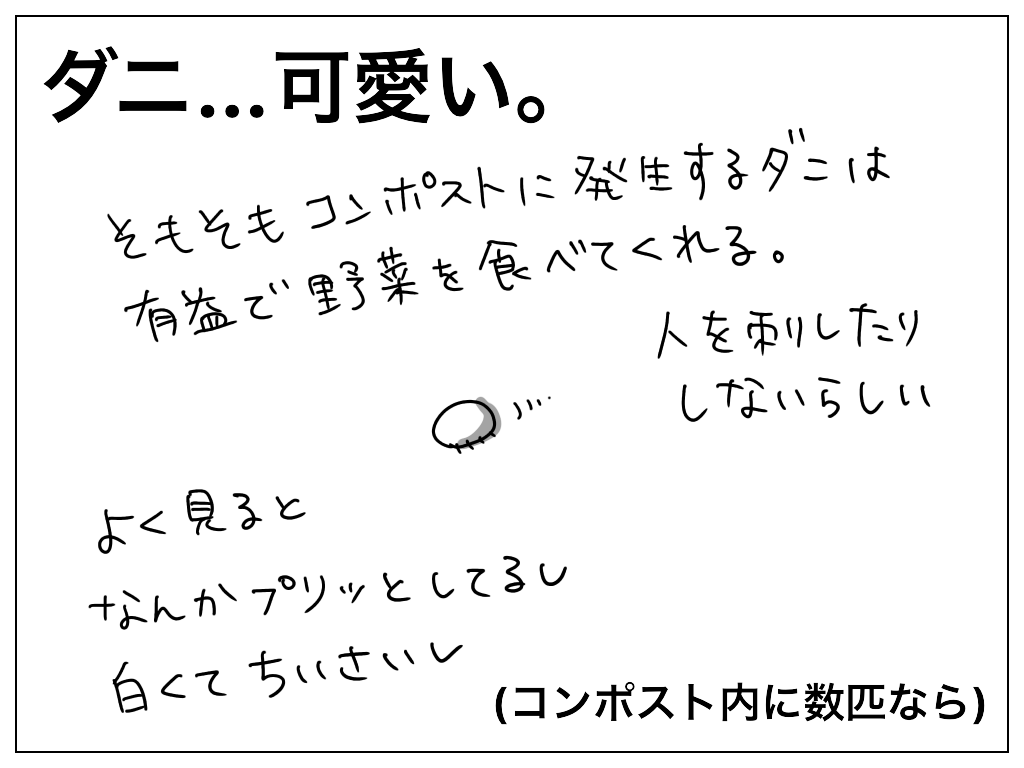 ダニ…可愛い。
そもそもコンポストに発生するダニは
有益で野菜を食べてくれる。
人を刺したり
しないらしい
よく見ると
なんかプリッとしてるし
白くてちいさいし
(コンポスト内に数匹なら)